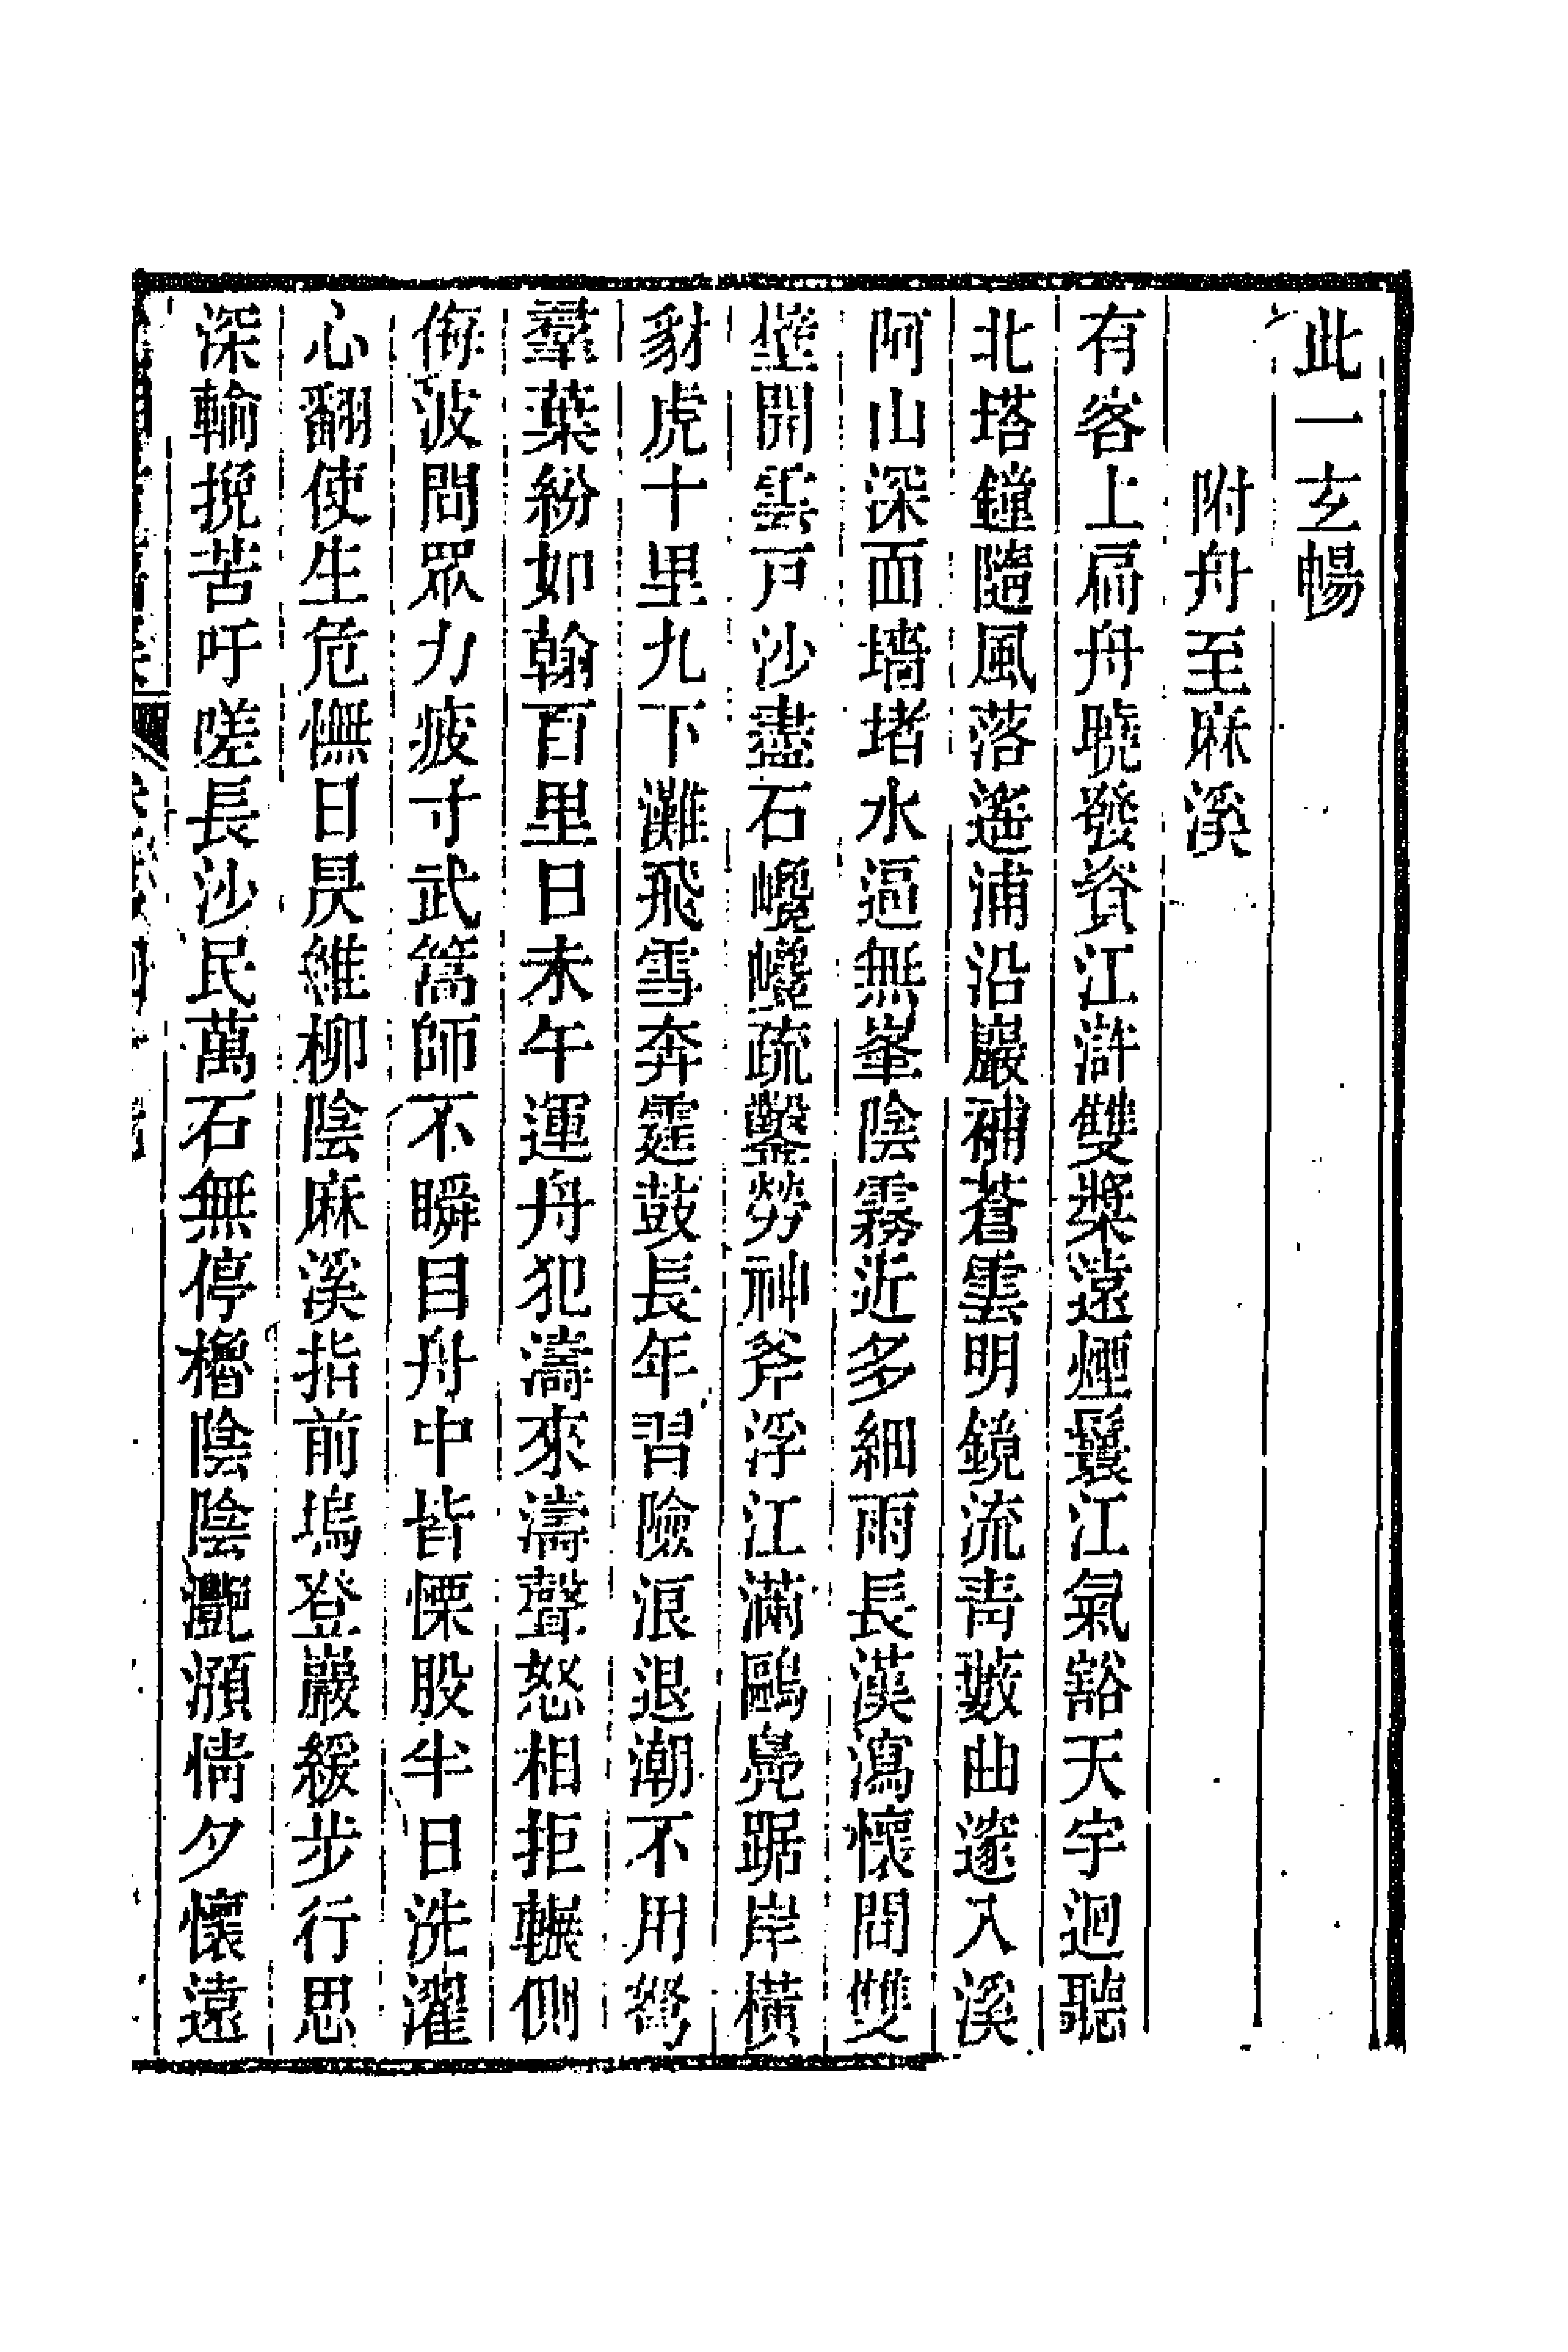 此一玄暢
附舟至麻溪
有客上扁舟曉發資江滸雙槳遠煙鬟江氣豁天宇迴聽
北塔鐘隨風落遙浦沿巖補蒼雲明鏡流青藪曲邃入溪
阿山深面墻堵水逼無峯陰霧近多細雨長漢瀉懷問雙
壁開雲戸沙盡石巉巉疏鑿勞神斧浮江滿鷗鳧踞岸橫
豺虎十里九下灘飛雪奔霆鼓長年習險浪退潮不用弩
羣葉紛如翰百里日未午運舟犯濤來濤聲怒相拒輾側
侮波問眾力疲寸武篙師不瞬目舟中皆慄股半日洗濯
心翻使生危憮日昃維柳陰麻溪指前塢登巖緩步行思
深輸挽苦吁嗟長沙民萬石無停櫓陰陰灔澦情夕懷遠